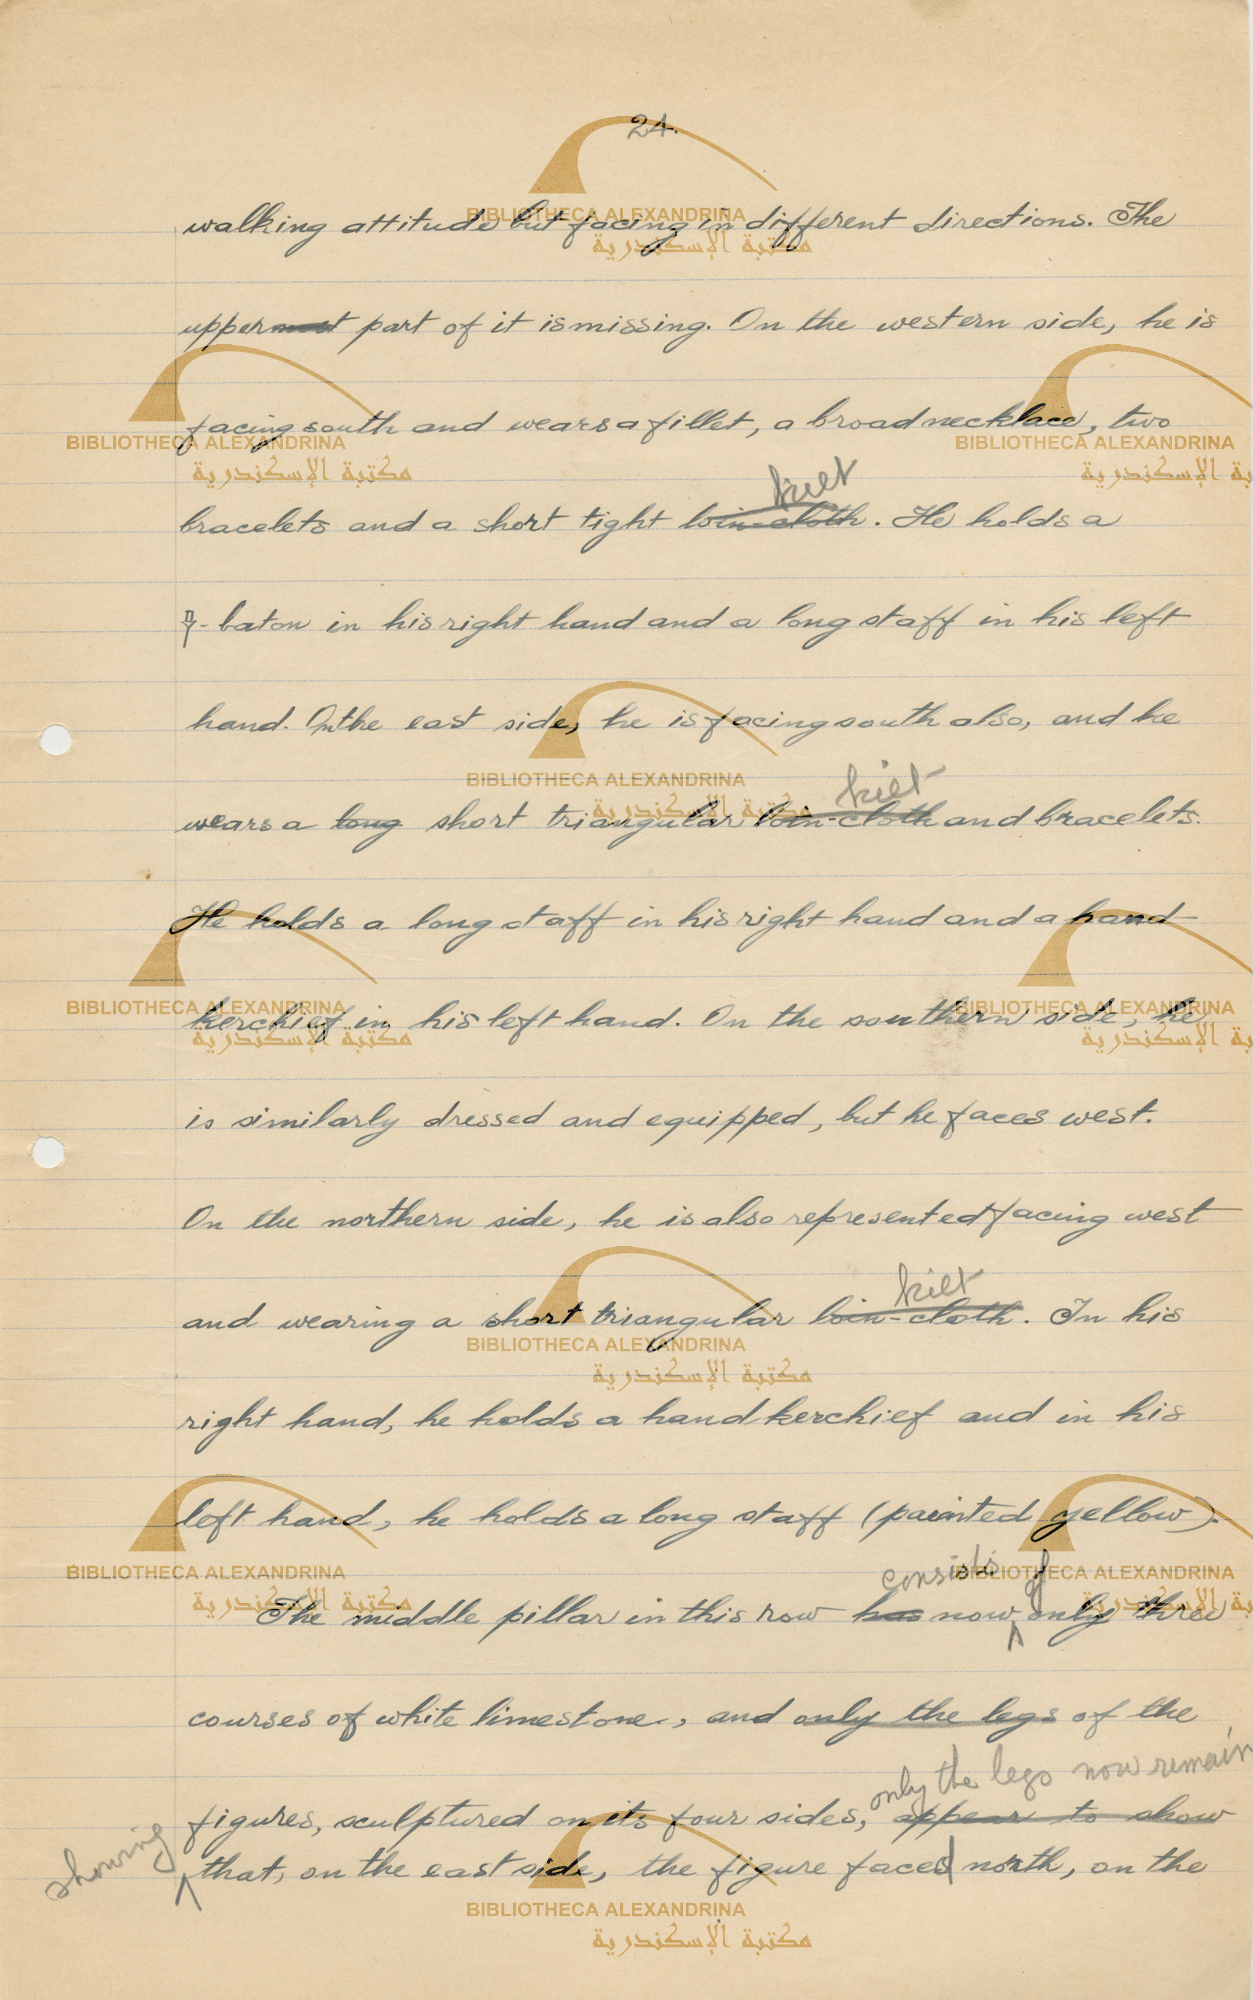 24.
walking attitude but facing in different directions. The
uppermost part of it is missing. On the western side, he is
facing south and wears a fillet, a broad necklace, two
kilt
bracelets and a short tight loin-cloth. He holds a
- baton in his right hand and a long staff in his left
hand. On the east side, he is facing south also, and he
kilt
wears a long short triangular loin-cloth and bracelets.
He holds a long staff in his right hand and a hand-
kerchief in his left hand. On the southern side, he
is similarly dressed and equipped, but he faces west.
On the northern side, he is also represented facing west
kilt
and wearing a short triangular loin-cloth. In his
right hand, he holds a handkerchief and in his
left hand, he holds a long staff (painted yellow).
consists of
The middle pillar in this row has now only three
courses of white limestone, and only the legs of the
only the legs now remain
figures, sculptured on its four sides, appear to show
showing
that, on the east side, the figure faced north, on the
BIBLIOTHECA ALEXANDRINA
مكتبة الإسكندرية